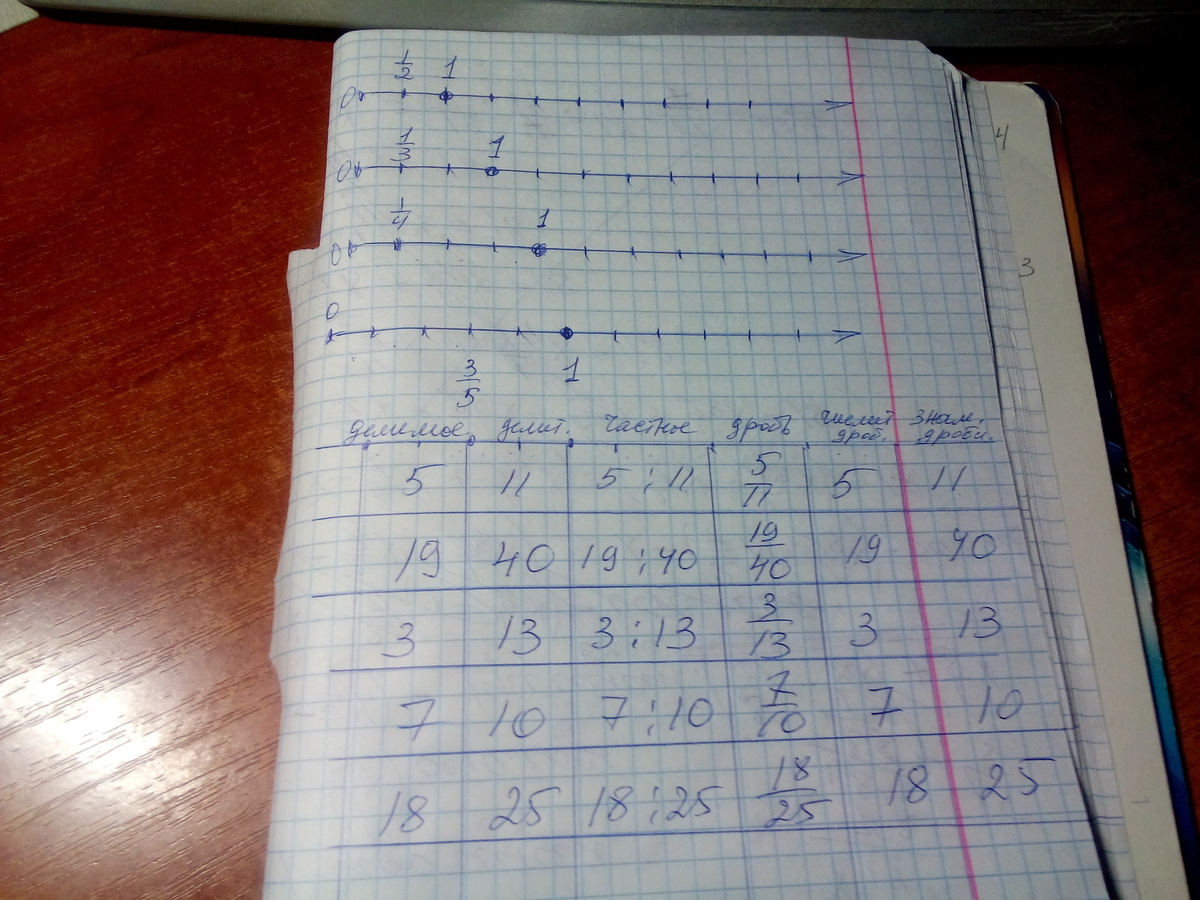 1/2 1
0
1/3 1
0
1/4 1
0
0
3/5 1
делимое делит. частное дробь числит дроб. знам. дроби.
5 11 5 : 11 5/11 5 11
19 40 19 : 40 19/40 19 40
3 13 3 : 13 3/13 3 13
7 10 7 : 10 7/10 7 10
18 25 18 : 25 18/25 18 25
4
3